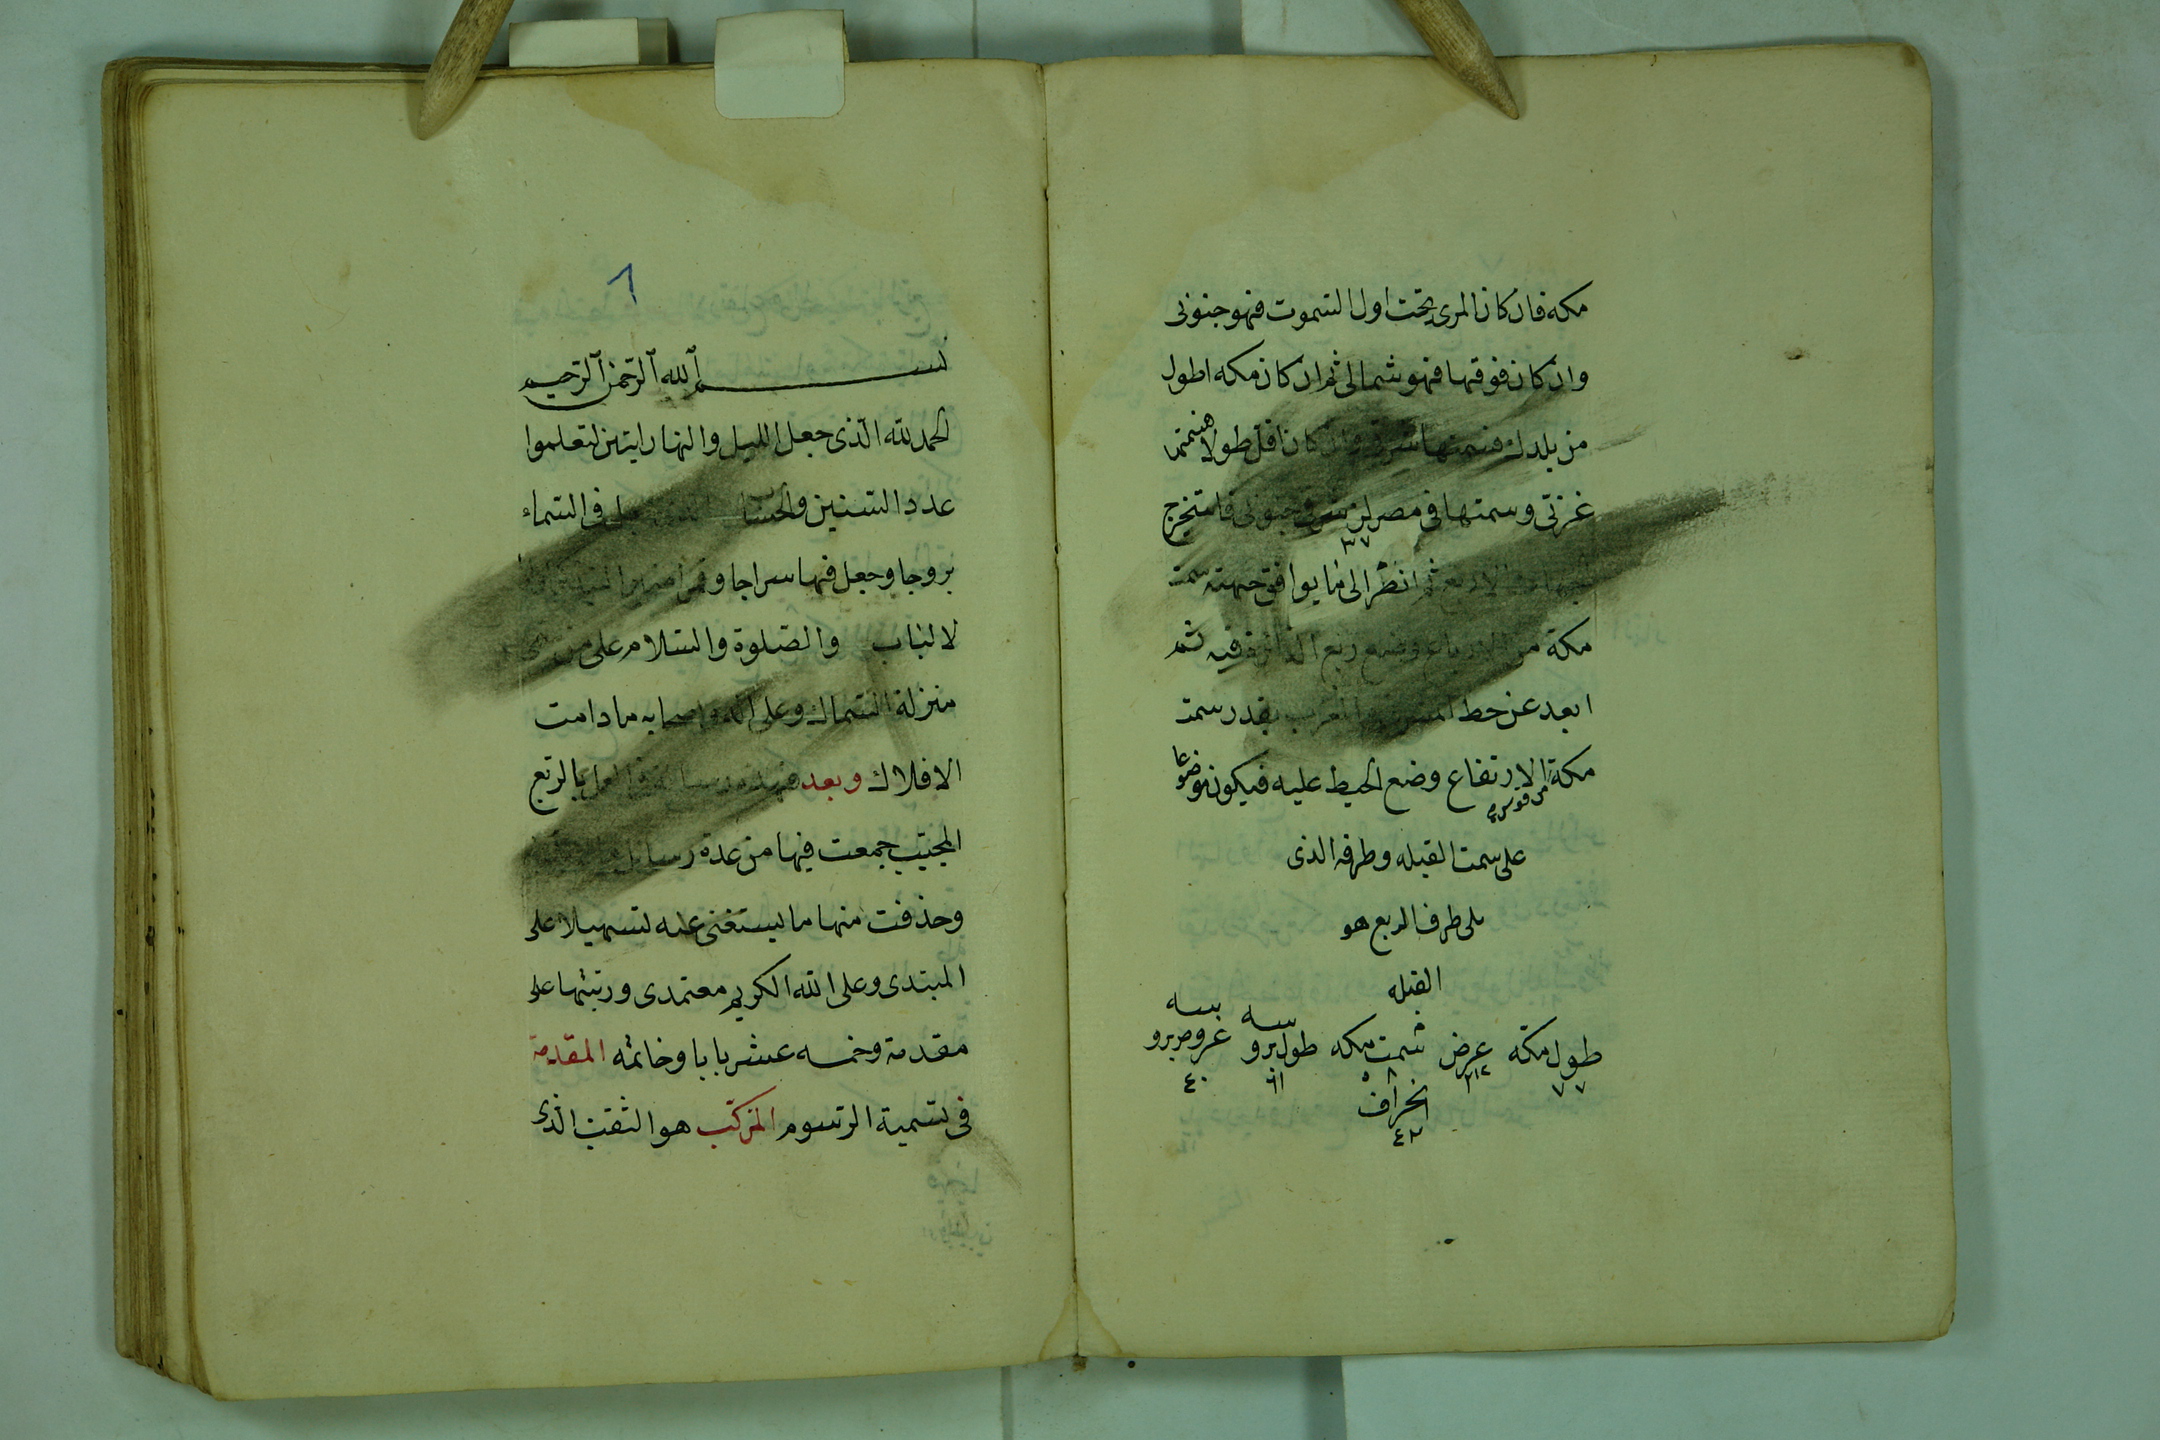 مكه فان كان المرى تحت اول السموت فهو جنوبى
وان كان فوقها فهو شمالى ثم ان كان مكه اطول
من بلدك فسمتها شرقى وان كان اقل طولا فسمتها
غربى وسمتها فى مصر لز شرقى جنوبى فاستخرج
٣٧
الجهات الاربع ثم انظر الى ما يوافق جهته سمت
مكة من الارباع وضع ربع الدائرة فيه ثم
ابعد عن خط المشرق والمغرب بقدر سمت
مكة من قوس الارتفاع وضع الخيط عليه فيكون موضوعا
على سمت القبله وطرفه الذى
يلى طرف الربع هو
القبله
طول مكه عرض سمت مكه طول برو سه عرض برو سه
٧٧ ٤٠
انحراف
٤٣
٦
بسم الله الرحمن الرحيم
الحمد لله الذى جعل الليل والنهار ايتين لتعلموا
عدد السنين والحساب الذى جعل فى السماء
بروجا وجعل فيها سراجا وقمرا منيرا
لالباب والصلوة والسلام على من
منزلة السماك وعلى اله واصحابه ما دامت
الافلاك وبعد فهذه رسالة فى العمل بالربع
المجيب جمعت فيها من عدة رسائل
وحذفت منها ما يستغنى عنه تسهيلا على
المبتدى وعلى الله الكريم معتمدى ورتبتها على
مقدمة وخمسه عشر بابا وخاتمه المقدمة
فى تسمية الرسوم المركب هو الثقب الذى